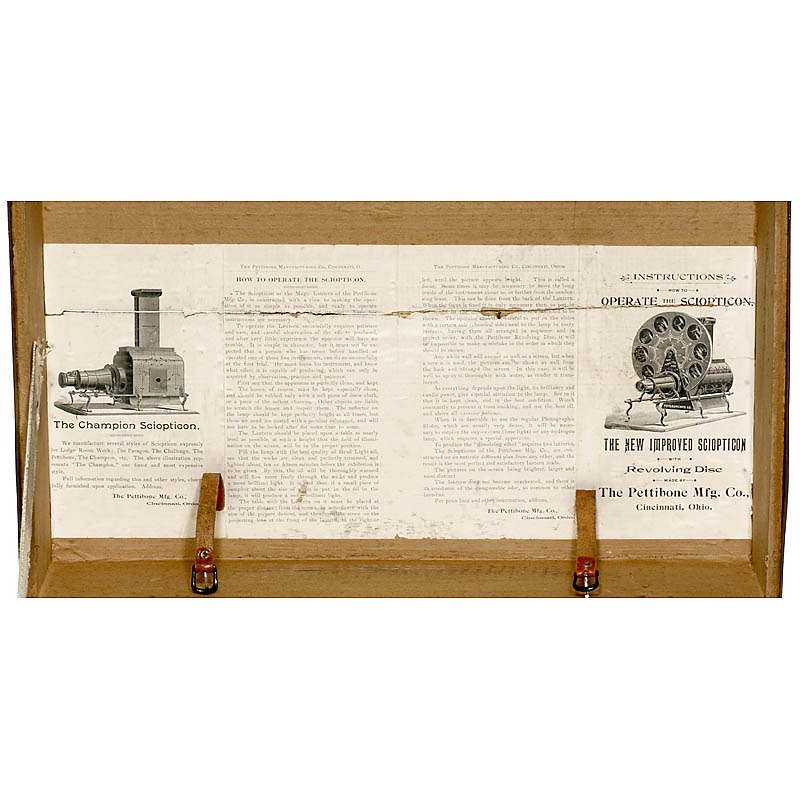 The Champion Sciopticon.
We manufacture several styles of Sciopticon expressly
for Lodge Room Work: The Paragon, The Challenge, The
Pettibone, The Champion, etc. The above illustration rep-
resents "The Champion," our finest and most expensive
style.
Full information regarding this and other styles, cheer-
fully furnished upon application. Address,
The Pettibone Mfg. Co.,
Cincinnati, Ohio.
The Pettibone Manufacturing Co., Cincinnati, O.
HOW TO OPERATE THE SCIOPTICON.
The Sciopticon or the Magic Lantern of the Pettibone
Mfg Co., is constructed with a view to making the oper-
ation of it as simple as possible, and ready to operate
instructions are necessary.
To operate the Lantern successfully requires patience
and care, and careful observation of the effects produced,
and after very little experience the operator will have no
trouble. It is simple in character, but it must not be ex-
pected that a person who has never before handled or
operated any of these fine instruments, can do so successfully
at the first trial. He must focus his instrument, and know
what effect it is capable of producing, which can only be
acquired by observation, practice and patience.
First see that the apparatus is perfectly clean, and kept
so. The lenses, of course, must be kept especially clean,
and should be rubbed only with a soft piece of down cloth,
or a piece of the softest chamois. Other objects are liable
to scratch the lenses and impair them. The reflector on
the lamp should be kept perfectly bright at all times, but
those we send are coated with a peculiar substance, and will
not have to be looked after for some time to come.
The Lantern should be placed upon a table as nearly
level as possible, at such a height that the field of illumi-
nation on the screen, will be in the proper position.
Fill the lamp with the best quality of Head Light oil,
see that the wicks are clean and perfectly trimmed, and
lighted about ten or fifteen minutes before the exhibition is
to be given. By this, the oil will be thoroughly warmed
and will flow more freely through the wicks and produce
a more brilliant light. It is said that if a small piece of
camphor about the size of a is put in the oil in the
lamp, it will produce a more brilliant light.
The table with the Lantern on it must be placed at
the proper distance from the screen, in accordance with the
size of the picture desired, and then the screw on the
projecting lens at the front of the Lantern, to the right or
The Pettibone Manufacturing Co., Cincinnati, Ohio.
left, until the picture appears bright. This is called a
focus. Some times it may be necessary to move the lamp
inside of the instrument closer to, or farther from the conden-
sing lense. This can be done from the back of the Lantern.
When the focus is fixed it is only necessary then to put in
shown. The operator should be careful to put in the slides
with a certain side next to the lamp in every
instance, having them all arranged in sequence and in
perfect order, with the Pettibone Revolving Disc, it will
be impossible to make a mistake in the order in which they
should be shown.
Any white wall will answer as well as a screen, but when
a screen is used, the pictures can be shown as well from
the back and through the screen. In this case, it will be
well to spray it thoroughly with water, as render it trans-
lucent.
As everything depends upon the light, its brilliancy and
candle power, give especial attention to the lamp. See to it
that it is kept clean, and in the best condition. Watch
constantly to prevent it from smoking, and use the best oil,
and above all exercise patience.
When it is desirable to use the regular Photographic
Slides, which are usually very dense, it will be neces-
sary to employ the oxy-calcium (lime light) or oxy-hydrogen
lamp, which requires a special apparatus.
To produce the "dissolving effect" requires two lanterns.
The Sciopticons of the Pettibone Mfg. Co., are con-
structed on an entirely different plan from any other, and the
result is the most perfect and satisfactory Lantern made.
The pictures on the screen being brighter, larger and
most distinct.
The lantern does not become overheated, and there is
an avoidance of the disagreeable odor, so common to other
lanterns.
For price lists and other information, address,
The Pettibone Mfg. Co.,
Cincinnati, Ohio.
INSTRUCTIONS
HOW TO
OPERATE THE SCIOPTICON.
THE NEW IMPROVED SCIOPTICON
WITH
Revolving Disc
MADE BY
The Pettibone Mfg. Co.,
Cincinnati, Ohio.